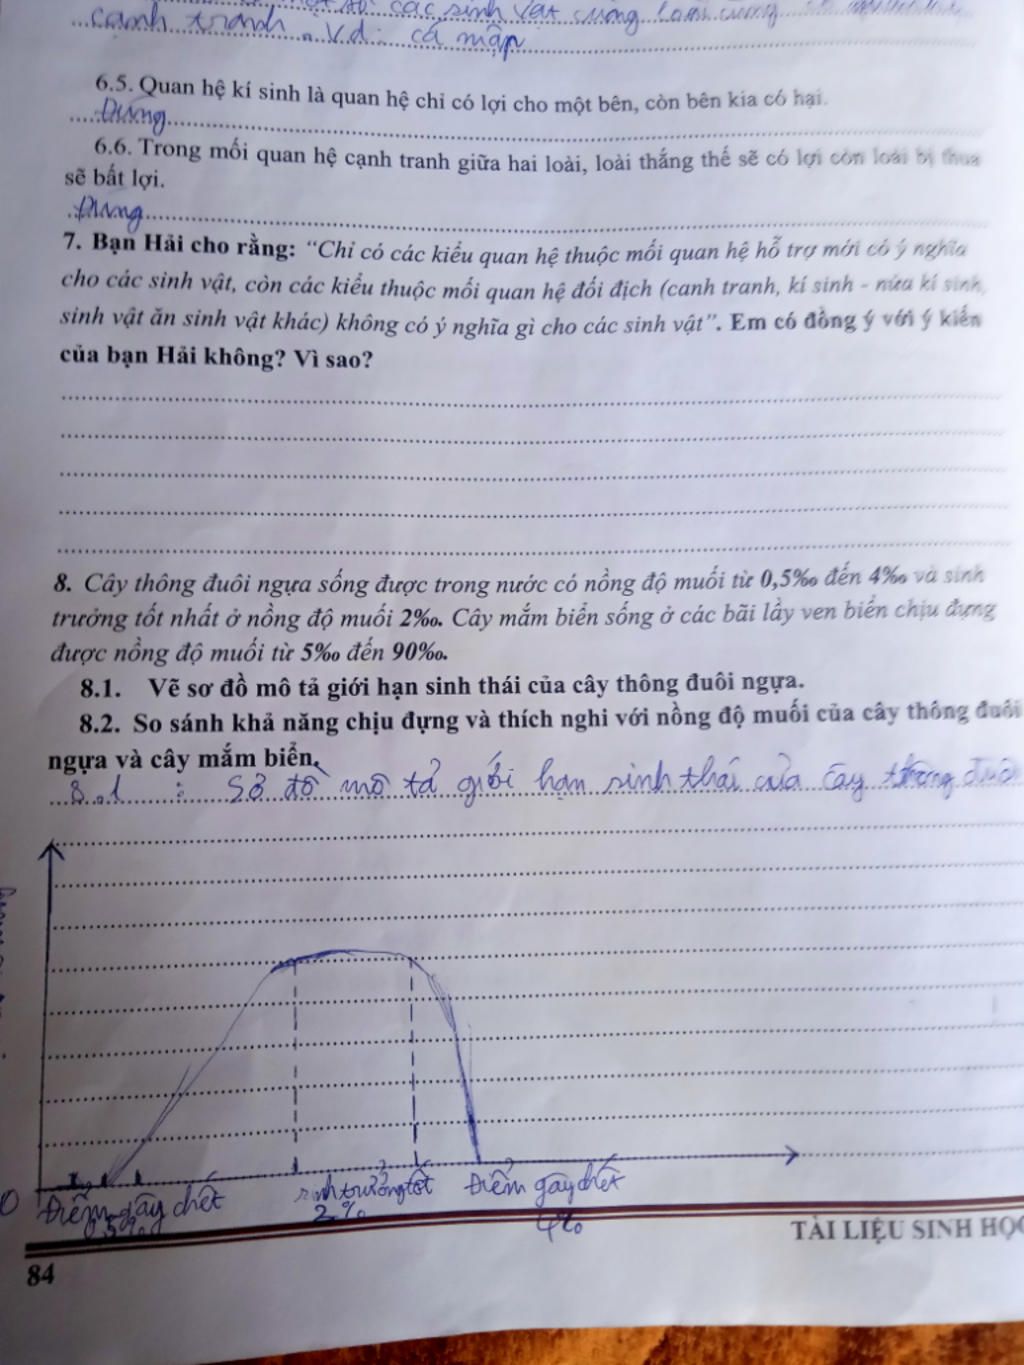 các sinh vật cùng loài cũng
cạnh tranh. Vd: cá mập
6.5. Quan hệ kí sinh là quan hệ chỉ có lợi cho một bên, còn bên kia có hại.
Đúng
6.6. Trong mối quan hệ cạnh tranh giữa hai loài, loài thắng thế sẽ có lợi còn loài bị thua
sẽ bất lợi.
Đúng
7. Bạn Hải cho rằng: “Chỉ có các kiểu quan hệ thuộc mối quan hệ hỗ trợ mới có ý nghĩa
cho các sinh vật, còn các kiểu thuộc mối quan hệ đối địch (canh tranh, kí sinh - nửa kí sinh,
sinh vật ăn sinh vật khác) không có ý nghĩa gì cho các sinh vật”. Em có đồng ý với ý kiến
của bạn Hải không? Vì sao?
8. Cây thông đuôi ngựa sống được trong nước có nồng độ muối từ 0,5‰ đến 4‰ và sinh
trưởng tốt nhất ở nồng độ muối 2‰. Cây mắm biển sống ở các bãi lầy ven biển chịu đựng
được nồng độ muối từ 5‰ đến 90‰.
8.1. Vẽ sơ đồ mô tả giới hạn sinh thái của cây thông đuôi ngựa.
8.2. So sánh khả năng chịu đựng và thích nghi với nồng độ muối của cây thông đuôi
ngựa và cây mắm biển.
8.1 : Sơ đồ mô tả giới hạn sinh thái của cây thông đuôi
0 Điểm gây chết sinh trưởng tốt Điểm gây chết
0,5‰ 2‰ 4‰
TÀI LIỆU SINH HỌC
84